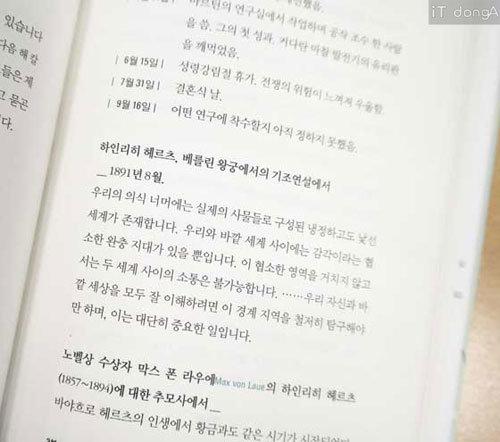 iT dongA
있습니다
다음 해 칼
들은 제
고 묻곤
다.
마르틴의 연구실에서 작업하며 공작 조수 한 사람
을 씀. 그의 첫 성과. 커다란 마찰 발전기의 유리판
을 깨먹었음.
| 6월 15일 | 성령강림절 휴가. 전쟁의 위험이 느껴져 우울함.
| 7월 31일 | 결혼식 날.
| 9월 16일 | 어떤 연구에 착수할지 아직 정하지 못했음.
하인리히 헤르츠, 베를린 왕궁에서의 기조연설에서
_ 1891년 8월.
우리의 의식 너머에는 실제의 사물들로 구성된 냉정하고도 낯선
세계가 존재합니다. 우리와 바깥 세계 사이에는 감각이라는 협
소한 완충 지대가 있을 뿐입니다. 이 협소한 영역을 거치지 않고
서는 두 세계 사이의 소통은 불가능합니다. ……우리 자신과 바
깥 세상을 모두 잘 이해하려면 이 경계 지역을 철저히 탐구해야
만 하며, 이는 대단히 중요한 일입니다.
노벨상 수상자 막스 폰 라우에Max von Laue의 하인리히 헤르츠
(1857~1894)에 대한 추모사에서_
바야흐로 헤르츠의 인생에서 황금과도 같은 시기가 시작되어